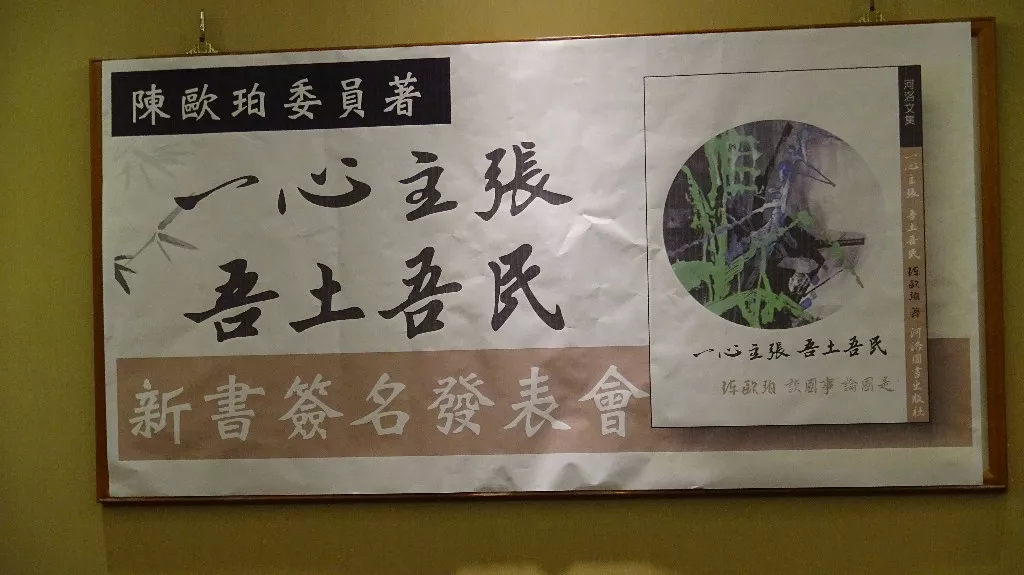 陳歐珀委員著
一心主張
吾土吾民
新書簽名發表會
一心主張 吾土吾民
陈歐珀 談國事 論國是
河洛文集
一心主張 吾土吾民 陈歐珀 著 河洛圖書出版社